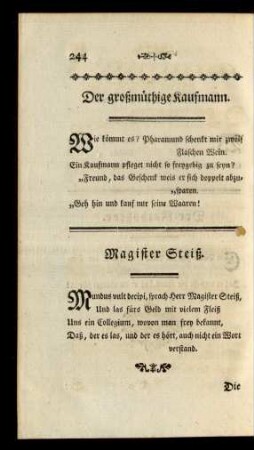 244
Der großmüthige Kaufmann.
Wie kömmt es? Pharamund schenkt mir zwölf
Flaschen Wein.
Ein Kaufmann pfleget nicht so freygebig zu seyn?
„Freund, das Geschenk weis er sich doppelt abzu-
„sparen.
„Geh hin und kauf nur seine Waaren!
Magister Steiß.
Mundus vult decipi, sprach Herr Magister Steiß,
Und las fürs Geld mit vielem Fleiß
Uns ein Collegium, wovon man frey bekannt,
Daß, der es las, und der es hört, auch nicht ein Wort
verstand.
Die